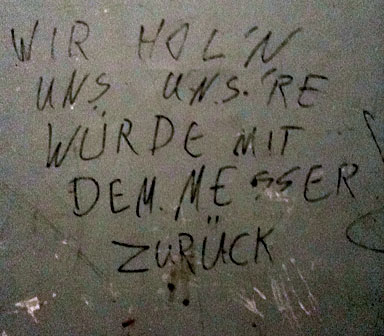 WIR HOL'N
UNS UNS'RE
WÜRDE MIT
DEM MESSER
ZURÜCK